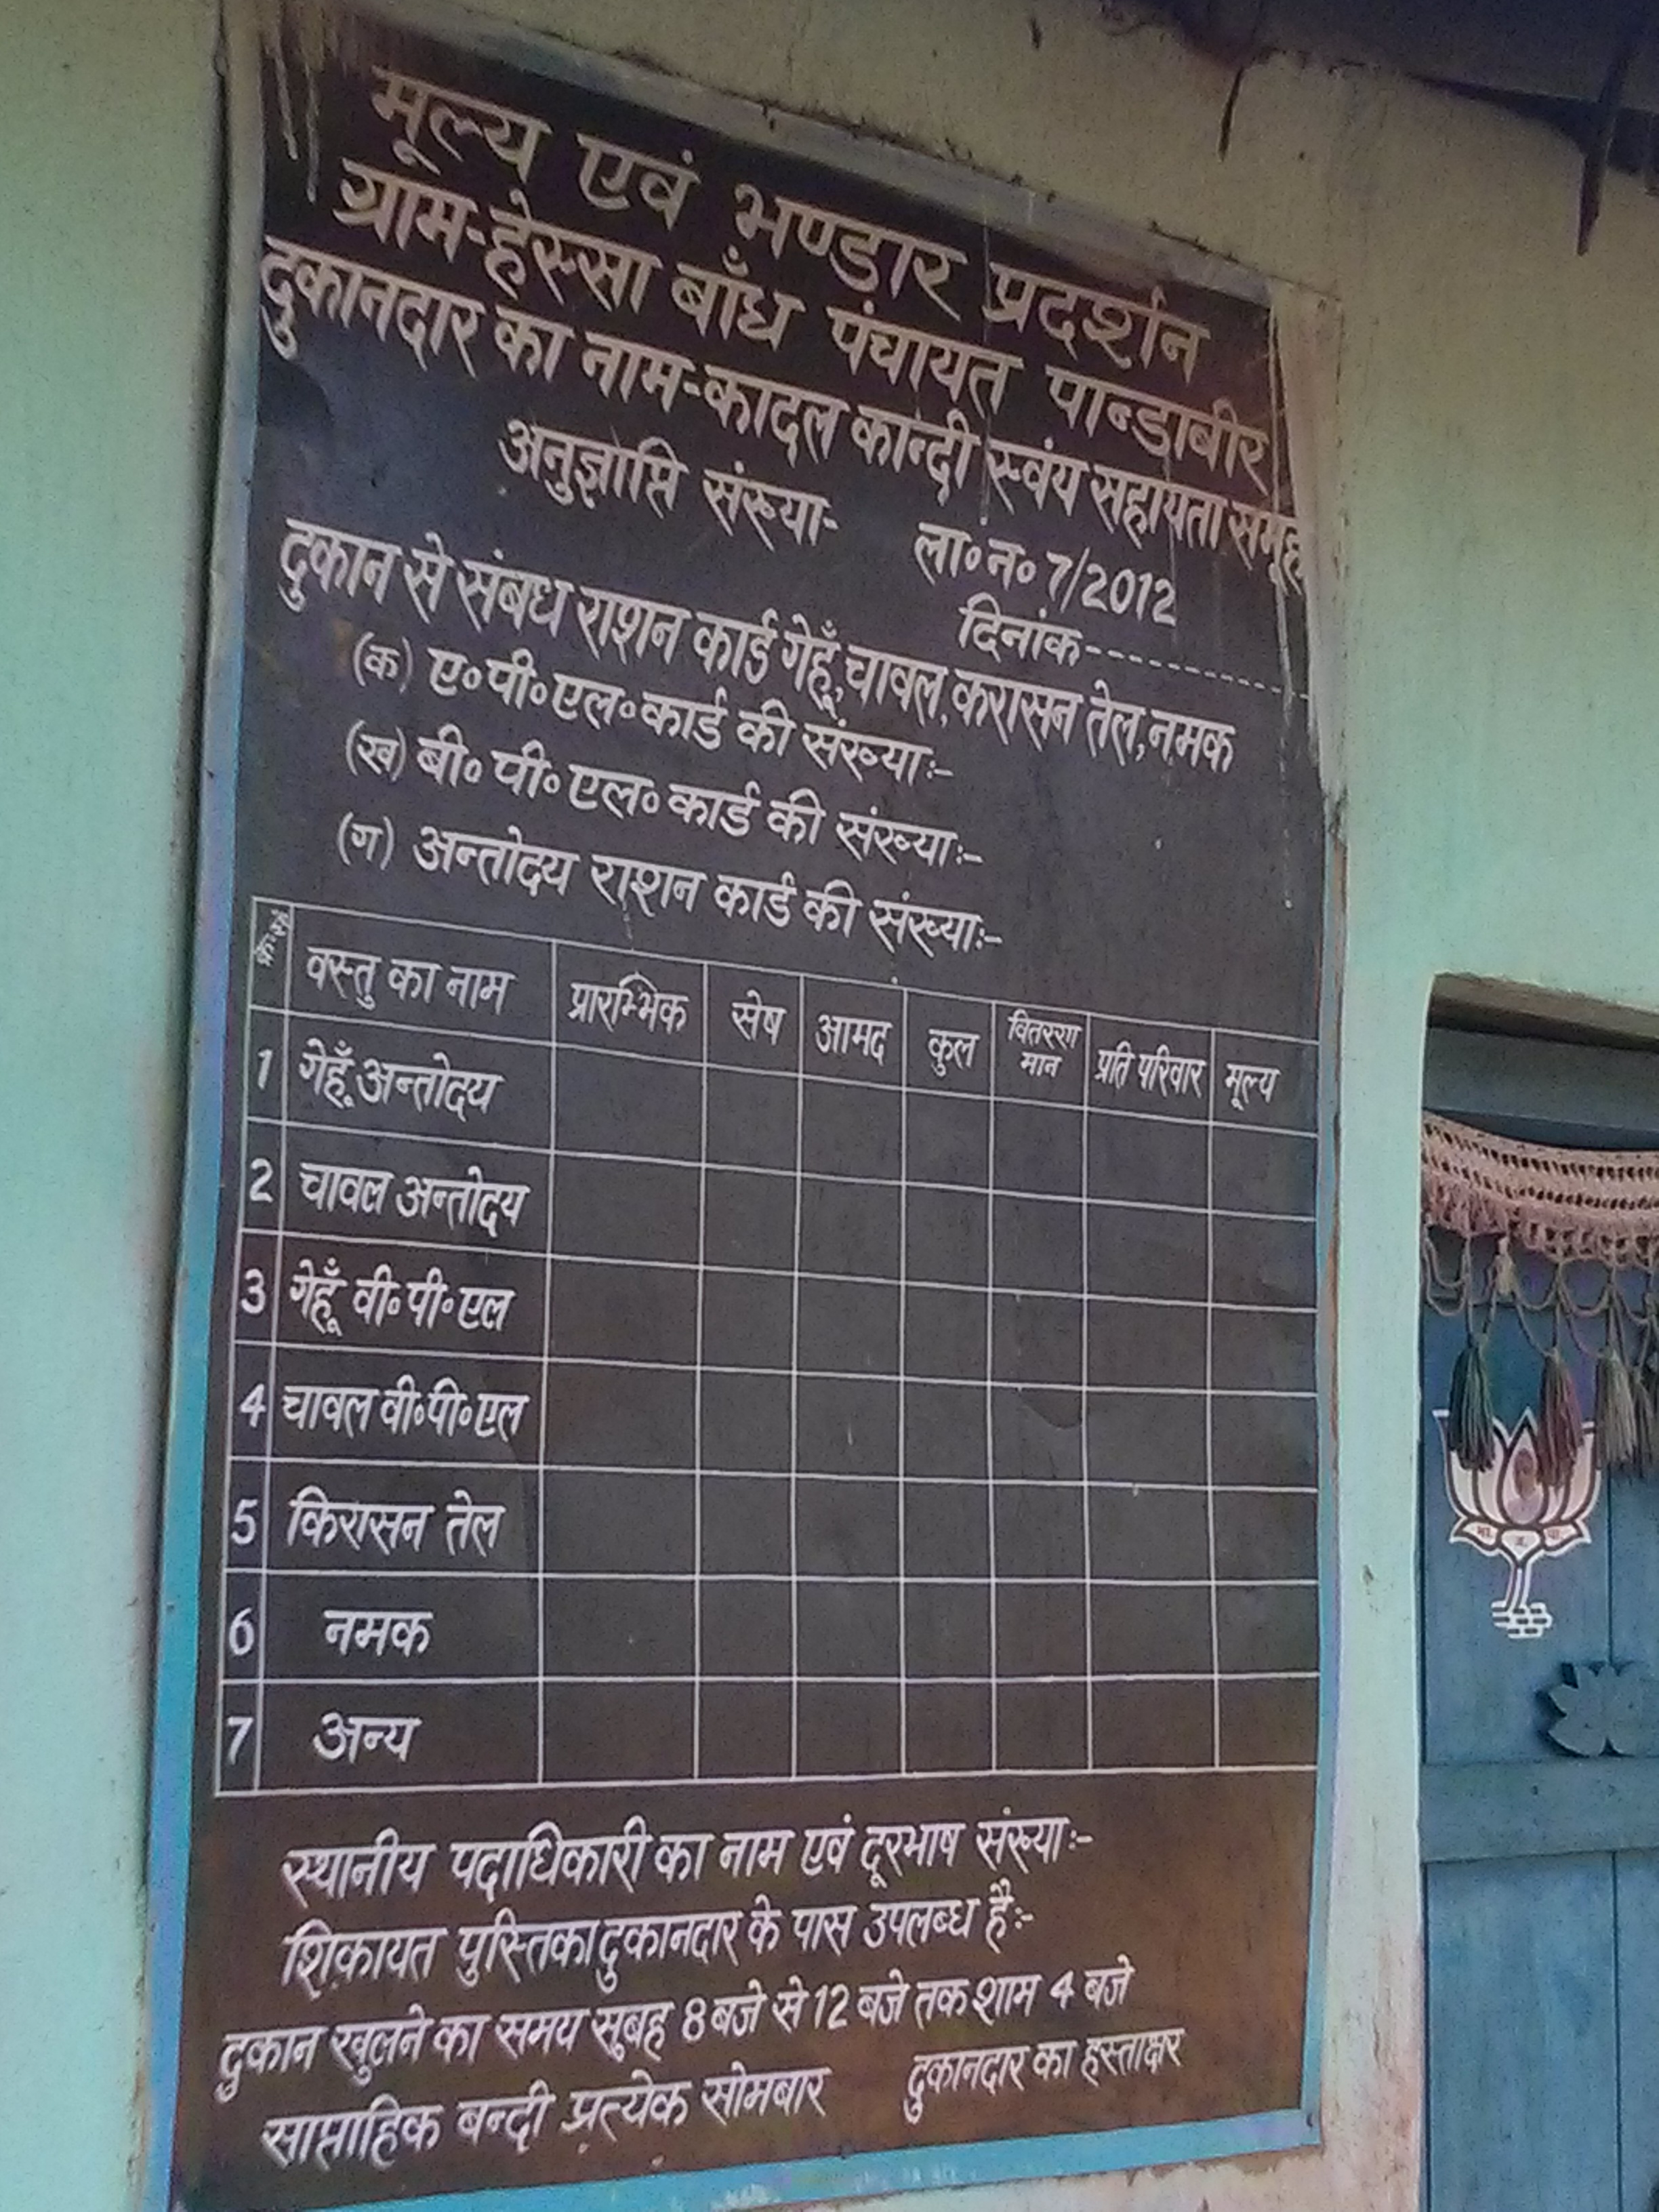 मूल्य एवं भण्डार प्रदर्शन
ग्राम-हेस्सा बाँध पंचायत पान्डाबीर
दुकानदार का नाम-कादल कान्दी स्वंय सहायता समूह
अनुज्ञाप्ति संख्या- ला॰न॰ 7/2012
दिनांक-----------
दुकान से संबध राशन कार्ड गेहूँ,चावल,करासन तेल,नमक
(क) ए॰पी॰एल॰कार्ड की संख्याः-
(ख) बी॰ पी॰ एल॰ कार्ड की संख्याः-
(ग) अन्तोदय राशन कार्ड की संख्याः-
वस्तु का नाम प्रारम्भिक सेष आमद कुल वितरण मान प्रति परिवार मूल्य
1 गेहूँ अन्तोदय
2 चावल अन्तोदय
3 गेहूँ वी॰पी॰एल
4 चावल वी॰पी॰एल
5 किरासन तेल
6 नमक
7 अन्य
स्थानीय पदाधिकारी का नाम एवं दूरभाष संख्याः-
शिकायत पुस्तिका दुकानदार के पास उपलब्ध हैः-
दुकान खुलने का समय सुबह 8 बजे से 12 बजे तक शाम 4 बजे
साप्ताहिक बन्दी प्रत्येक सोमबार दुकानदार का हस्ताक्षर
भा. ज. पा.